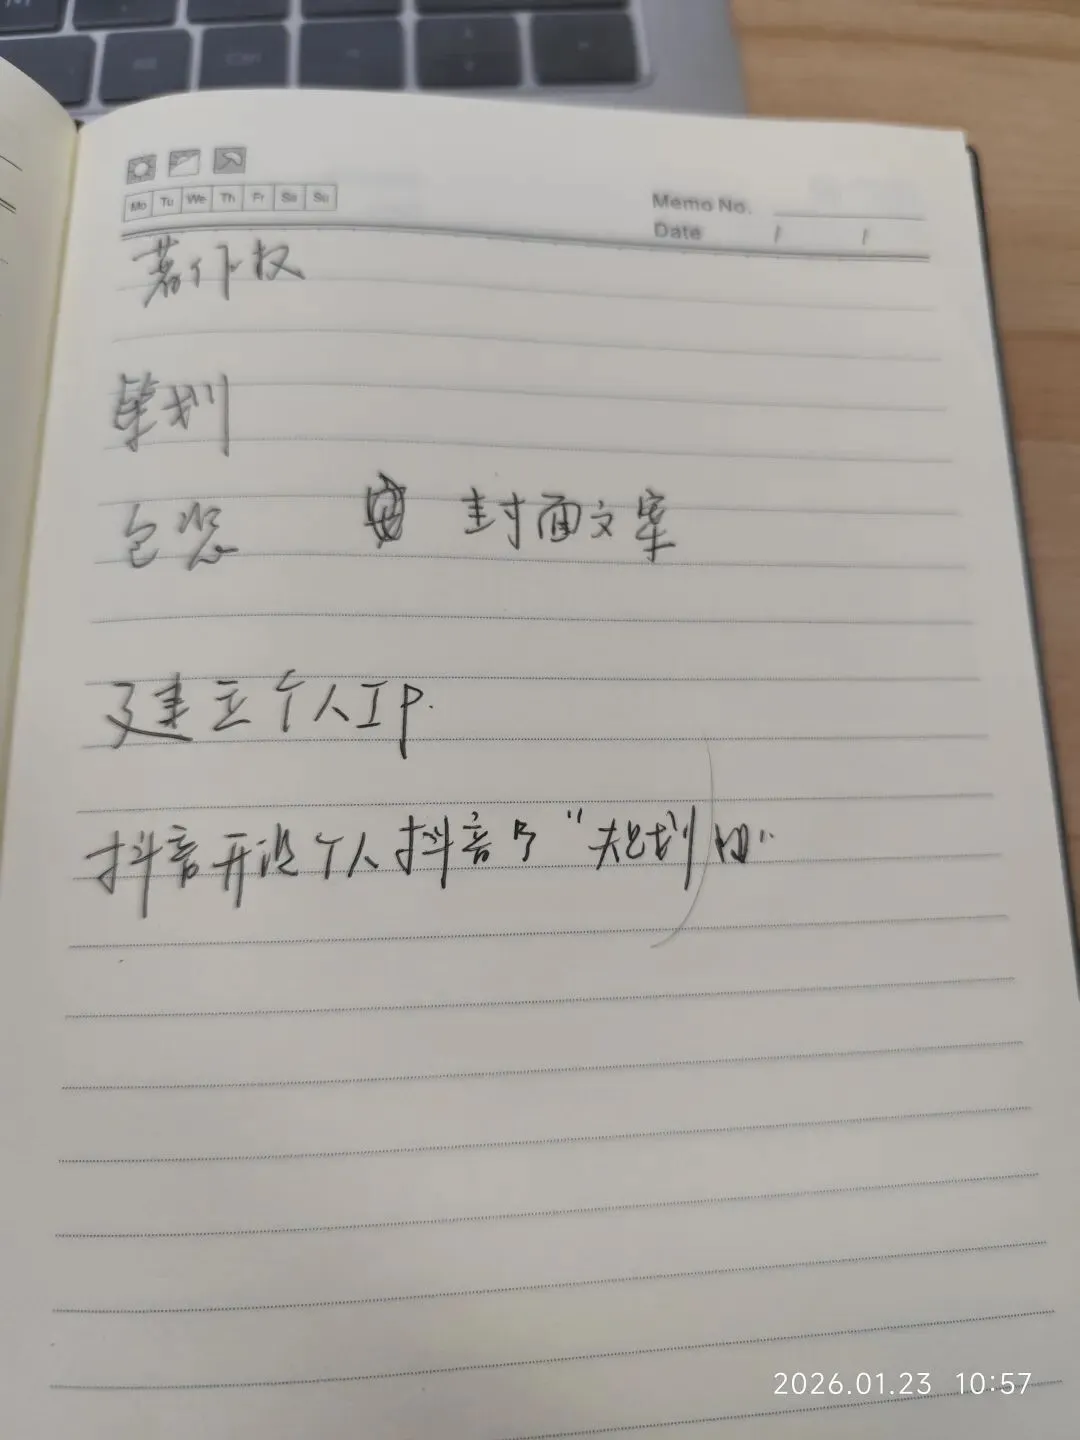 Mo Tu We Th Fr Sa Su
Memo No.
Date / /
著作权
策划
包装 封面文案
建立个人IP.
抖音开设个人抖音号“规划中”
2026.01.23 10:57